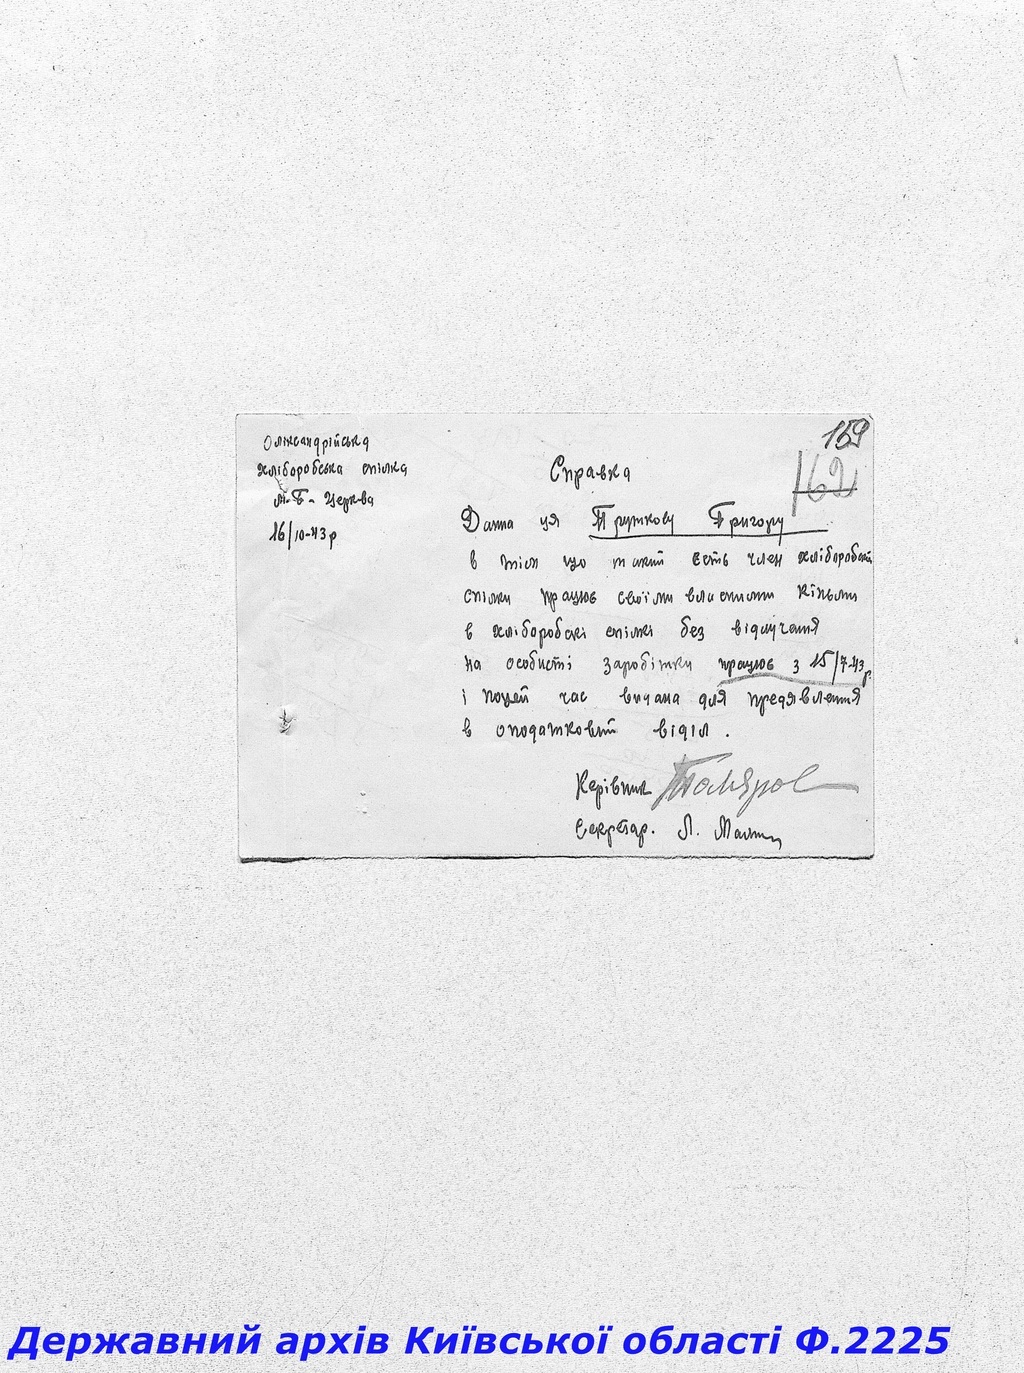 159
162
Оліксандрійська
хліборобська спілка
м. Б. Церква
16/10-43 р
Справка
Данна ця Трушкову Григору
в тім що такий єсть член хліборобскої
спілки працює своїми власними кіньми
в хліборобскі спілкі без відлучання
на особисті заробітки працює з 15/7-43 р.
і поцей час видана для предявлення
в оподатковий віділ.
Керівник
Секретар. Л.
Державний архів Київської області Ф.2225